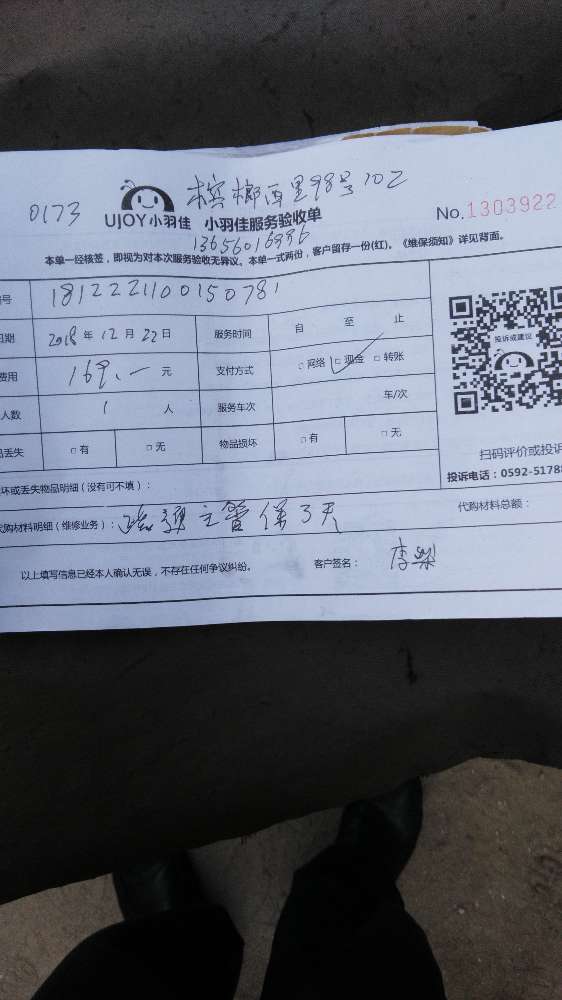 槟榔西里98号102
0173
UJOY小羽佳 小羽佳服务验收单
No.1303922
13656016996
本单一经核签，即视为对本次服务验收无异议。本单一式两份，客户留存一份(红)。《维保须知》详见背面。
号 1812221100150781
期 2018年12月22日 服务时间 自 至 止
费用 169.一元 支付方式 □网络 □现金 □转账
人数 1人 服务车次 车/次
丢失 □有 □无 物品损坏 □有 □无
投诉或建议
扫码评价或投诉
投诉电话：0592-5178
坏或丢失物品明细（没有可不填）：
代购材料明细（维修业务）： 主管保3天 代购材料总额：
以上填写信息已经本人确认无误，不存在任何争议纠纷。 客户签名： 李